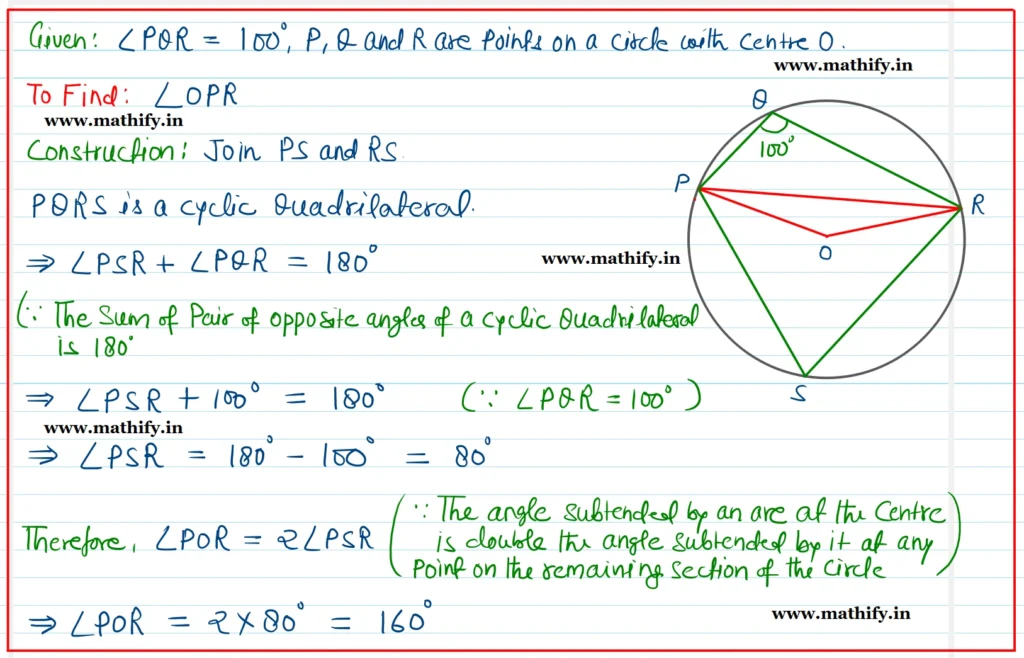 Given: ∠PQR = 100°, P, Q and R are Points on a Circle with Centre O.
www.mathify.in
To Find: ∠OPR
www.mathify.in
Construction: Join PS and RS.
PQRS is a cyclic Quadrilateral.
⇒ ∠PSR + ∠PQR = 180°
www.mathify.in
(∵ The Sum of Pair of opposite angles of a cyclic Quadrilateral
is 180°
⇒ ∠PSR + 100° = 180° (∵ ∠PQR = 100°)
www.mathify.in
⇒ ∠PSR = 180° - 100° = 80°
Therefore, ∠POR = 2∠PSR
(∵ The angle subtended by an arc at the Centre
is double the angle subtended by it at any
Point on the remaining Section of the Circle)
⇒ ∠POR = 2 × 80° = 160°
www.mathify.in
Q
100°
P
R
O
S